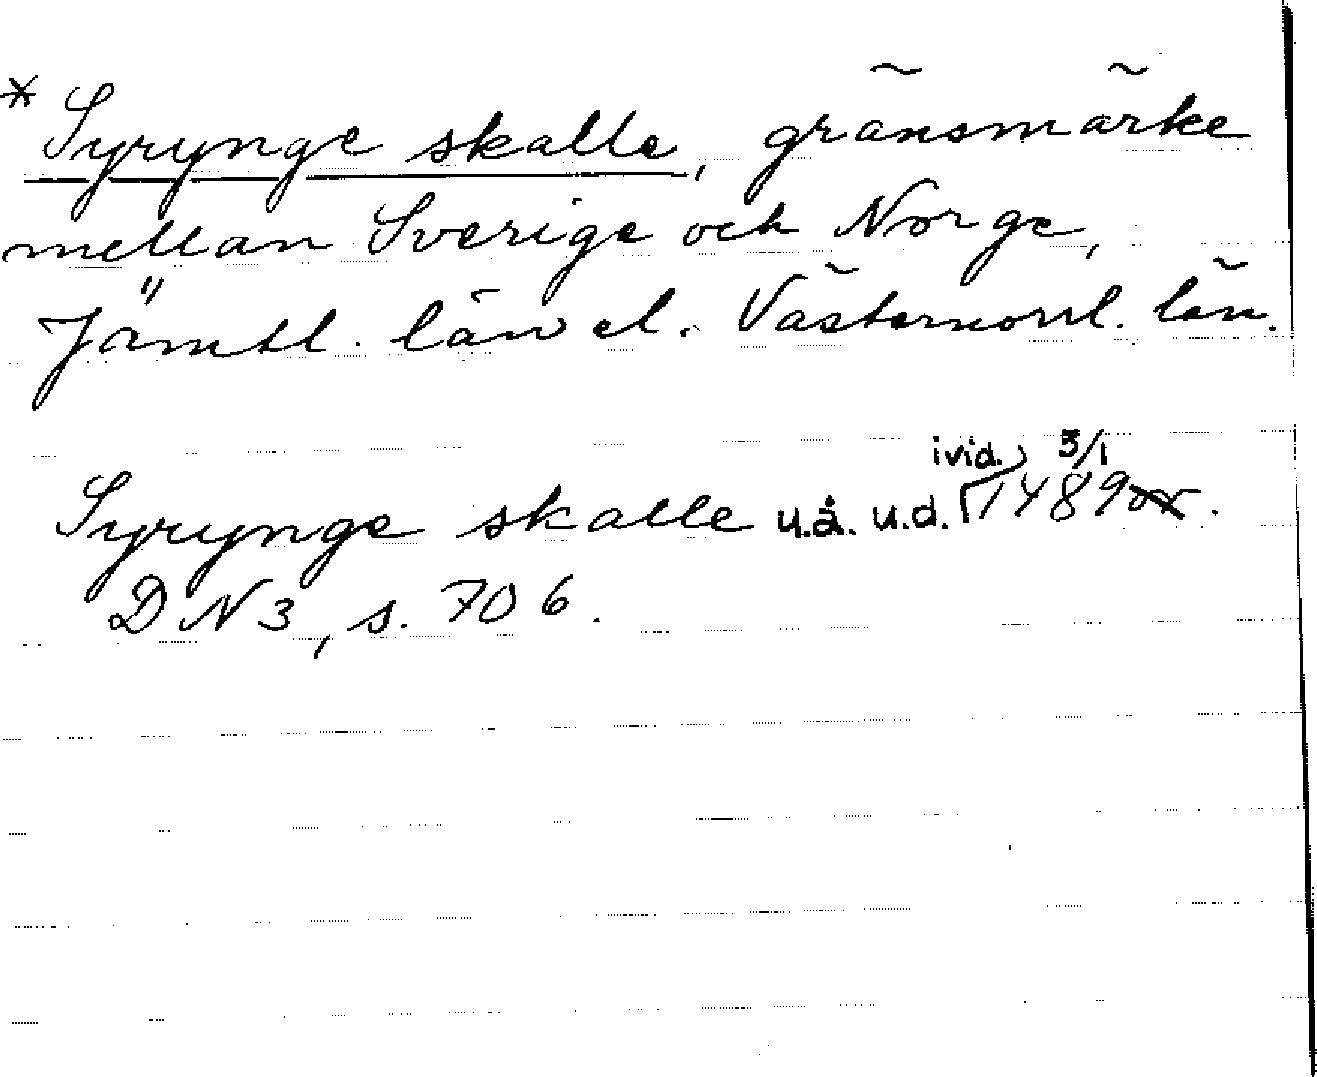 * Syrynge skalle, gränsmärke
mellan Sverige och Norge,
Jämtl. län el. Västernorrl. län.
ivid. 3/1
Syrynge skalle u.å. u.d. 1489.
DN 3, s. 706.